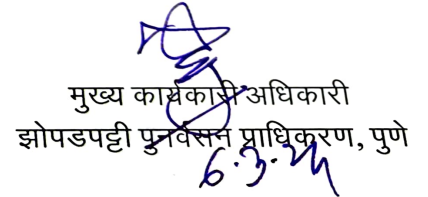 मुख्य कार्यकारी अधिकारी
झोपडपट्टी पुनर्वसन प्राधिकरण, पुणे